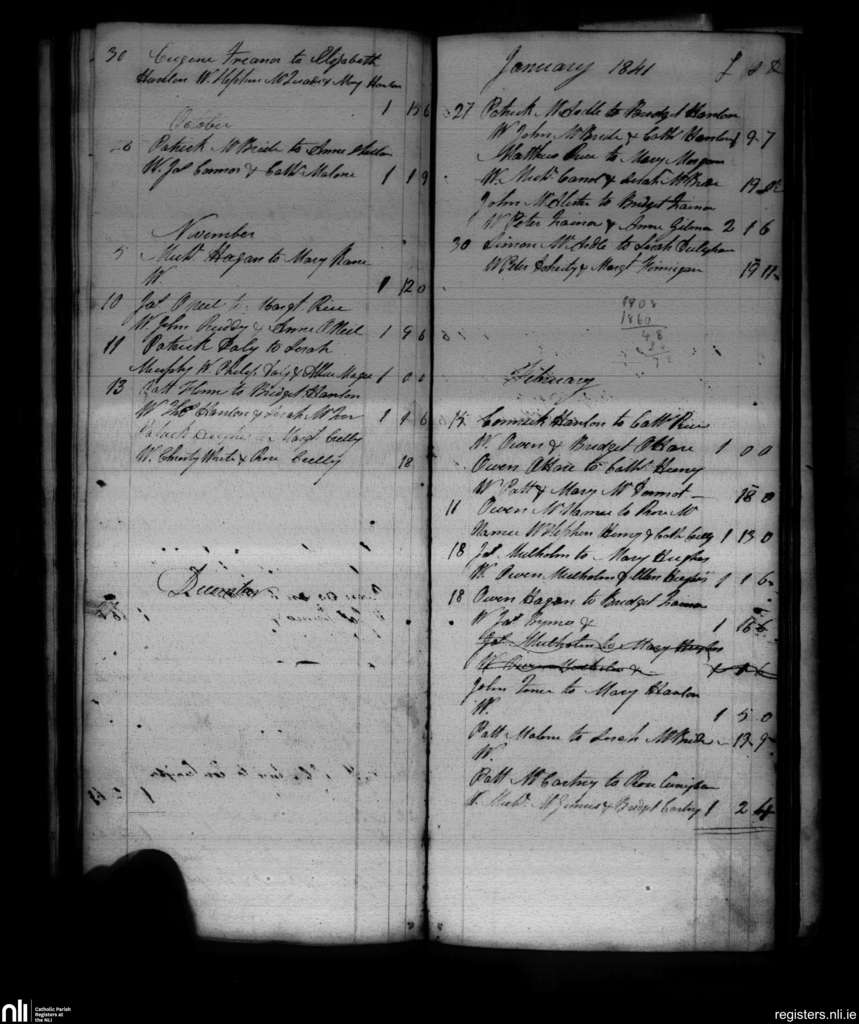 30 Eugene Treanor to Elizabeth
Hanlon W. Stephen McQuade & Mary Hanlon
1 15 6
October
26 Patrick McBride to Anne
W. Jas Connor & Cathe Malone 1 1 9
November
5 Michl Hagan to Mary Kane
W. 1 12 0
10 Jas O Neel to Margt Rice
W. John Ruddy & Anne O Neel 1 9 6
11 Patrick Daly to Sarah
Murphy W. Philip Daly & Alice Magee 1 0 0
13 Patt to Bridget Hanlon
W. Thos Hanlon & Sarah 1 1 6
Patrick to Margt Cully
W. Christy White & Rose Cully 18
December
January 1841 £ s d
27 Patrick McArdle to Bridget Hanlon
W. John McBride & Cathe Hanlon 1 9 7
Matthew Rice to Mary Morgan
W. Michl Carrol & Sarah McBride 19
John McAlister to Bridget Trainor
W. Peter Trainor & Anne Gilmor 2 1 6
30 Simon McArdle to Sarah
W. Peter Doherty & Margt Finnigan 19 11
1808
1860
48
February
15 Cormick Hanlon to Cathe Rice
W. Owen & Bridget O Hare 1 0 0
Owen O Hare to Cathe Henry
W. Patt & Mary McDermot 18 0
11 Owen McNamee to Rose Mc
Namee W. Stephen Henry & Cathe Cully 1 15 0
18 Jas Mulholm to Mary Hughes
W. Owen Mulholm & Ellen Hughes 1 1 6
18 Owen Hagan to Bridget Trainor
W. Jas Tymos & 1 16 6
Jas Mulholm to Mary Hughes
W. Owen Mulholm &
John Toner to Mary Hanlon
W. 1 5 0
Patt Malone to Sarah McBride 13 9
W.
Patt McCartney to Rose
W. Michl McGinnis & Bridget 1 2 4
nli
Catholic Parish
Registers at
the NLI
registers.nli.ie